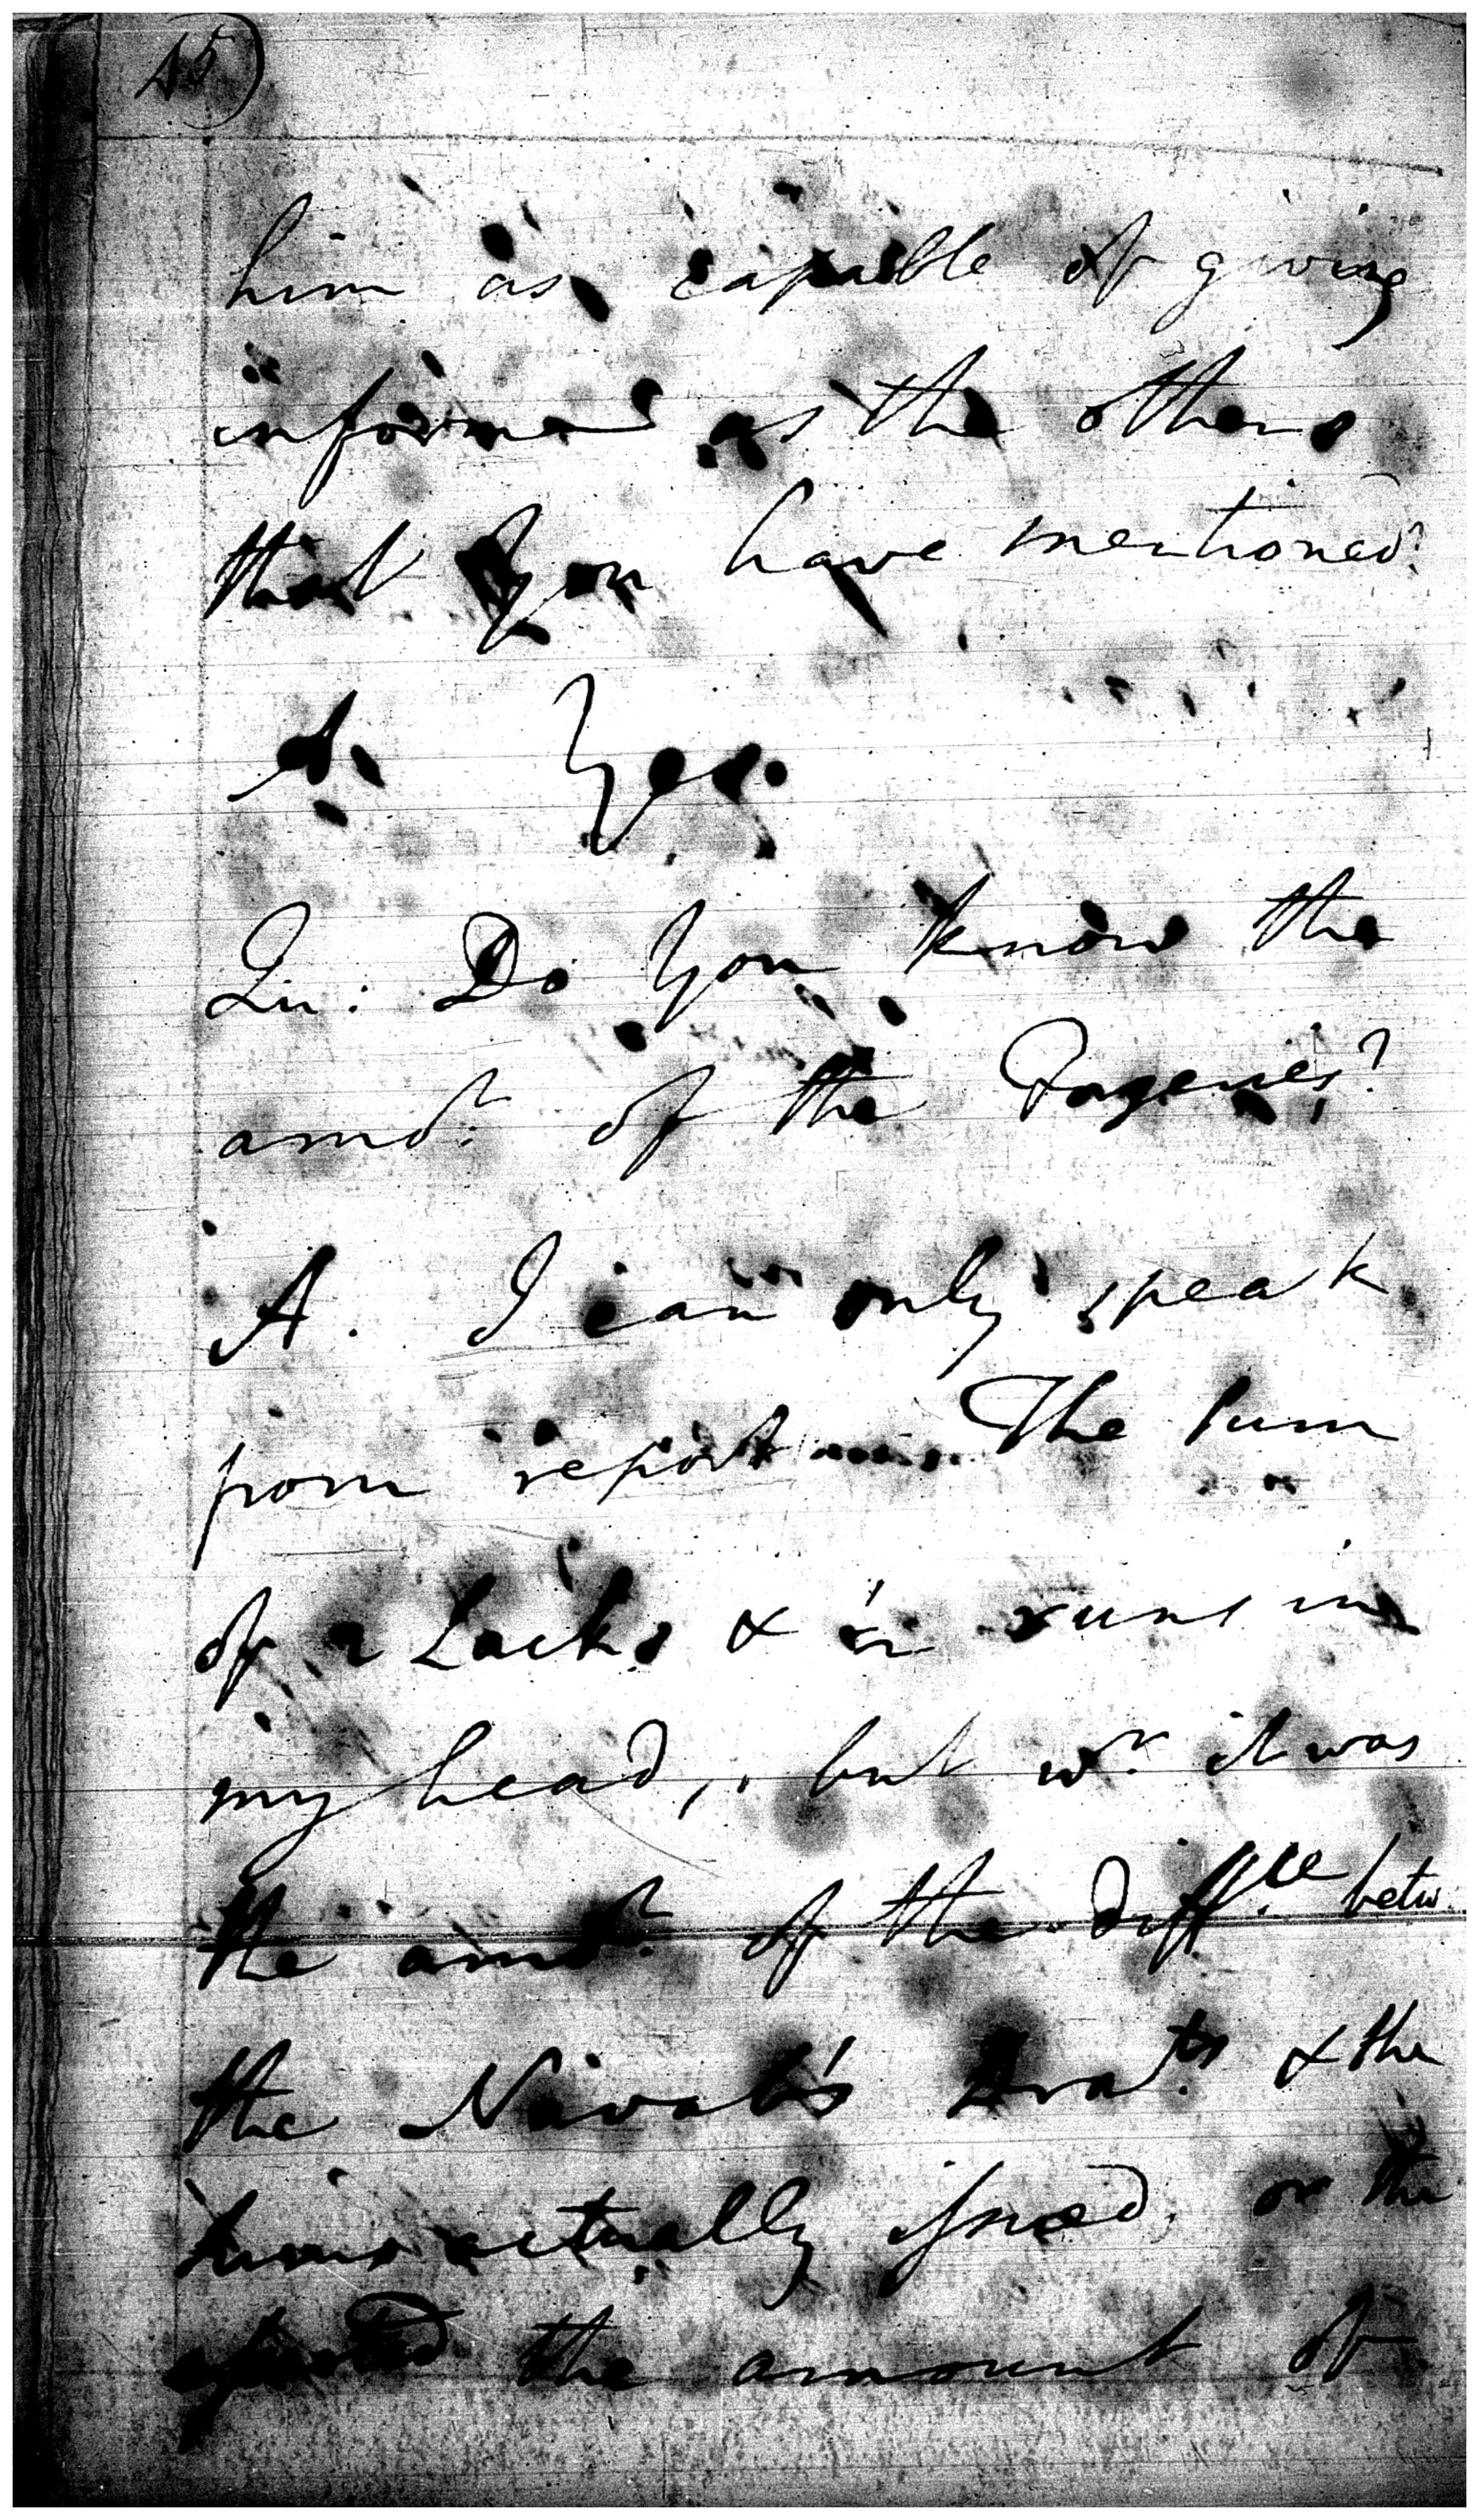 45)
him as capable of giving
informn as the others
that You have mentioned?
A. Yes.
Qu: Do You know the
amot. of the Forgeries?
A. I can only speak
from report The Sum
of 2 Lacks & runs in
my head, but wr. it was
the amot. of the diffce. betw.
the Navab's Drats. & the
sums actually issued, or the
the amount of